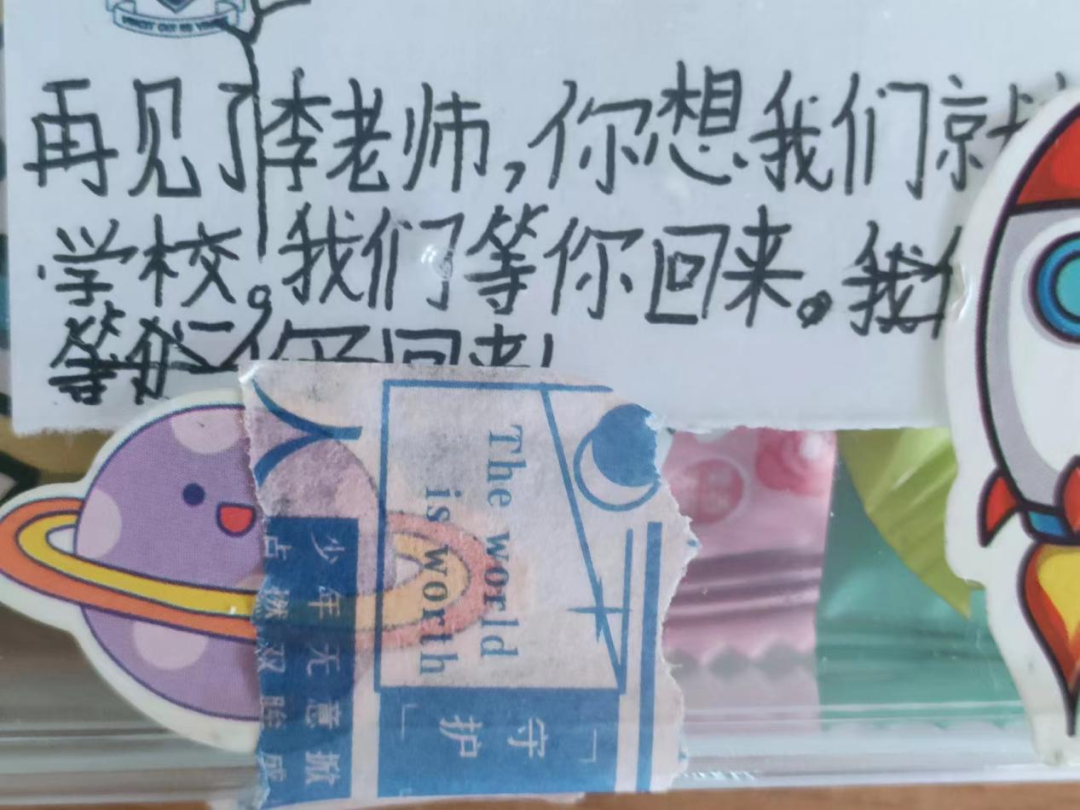 再见了李老师,你想我们京
学校。我们等你回来。我们
等你回来!
The world
is worth
少年无意掀
占燃双脸
「守
护」